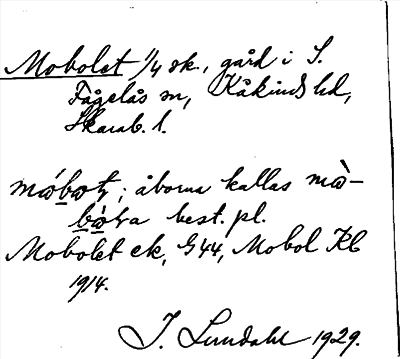 Mobolet 1/4 sk., gård i S.
Fågelås sn, Kåkinds hd,
Skarab. l.
åborna kallas
best. pl.
Mobolet ek, G 44, Mobol Kb
1914.
I. Lundahl 1929.